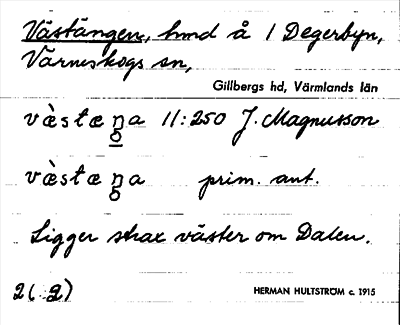 Västängen, hmd å 1 Degerbyn,
Värmskogs sn,
Gillbergs hd, Värmlands län
væ̀stæŋa 11:250 J. Magnusson
væ̀stæŋa prim. ant.
Ligger strax väster om Dalen.
2(:2)
HERMAN HULTSTRÖM c. 1915